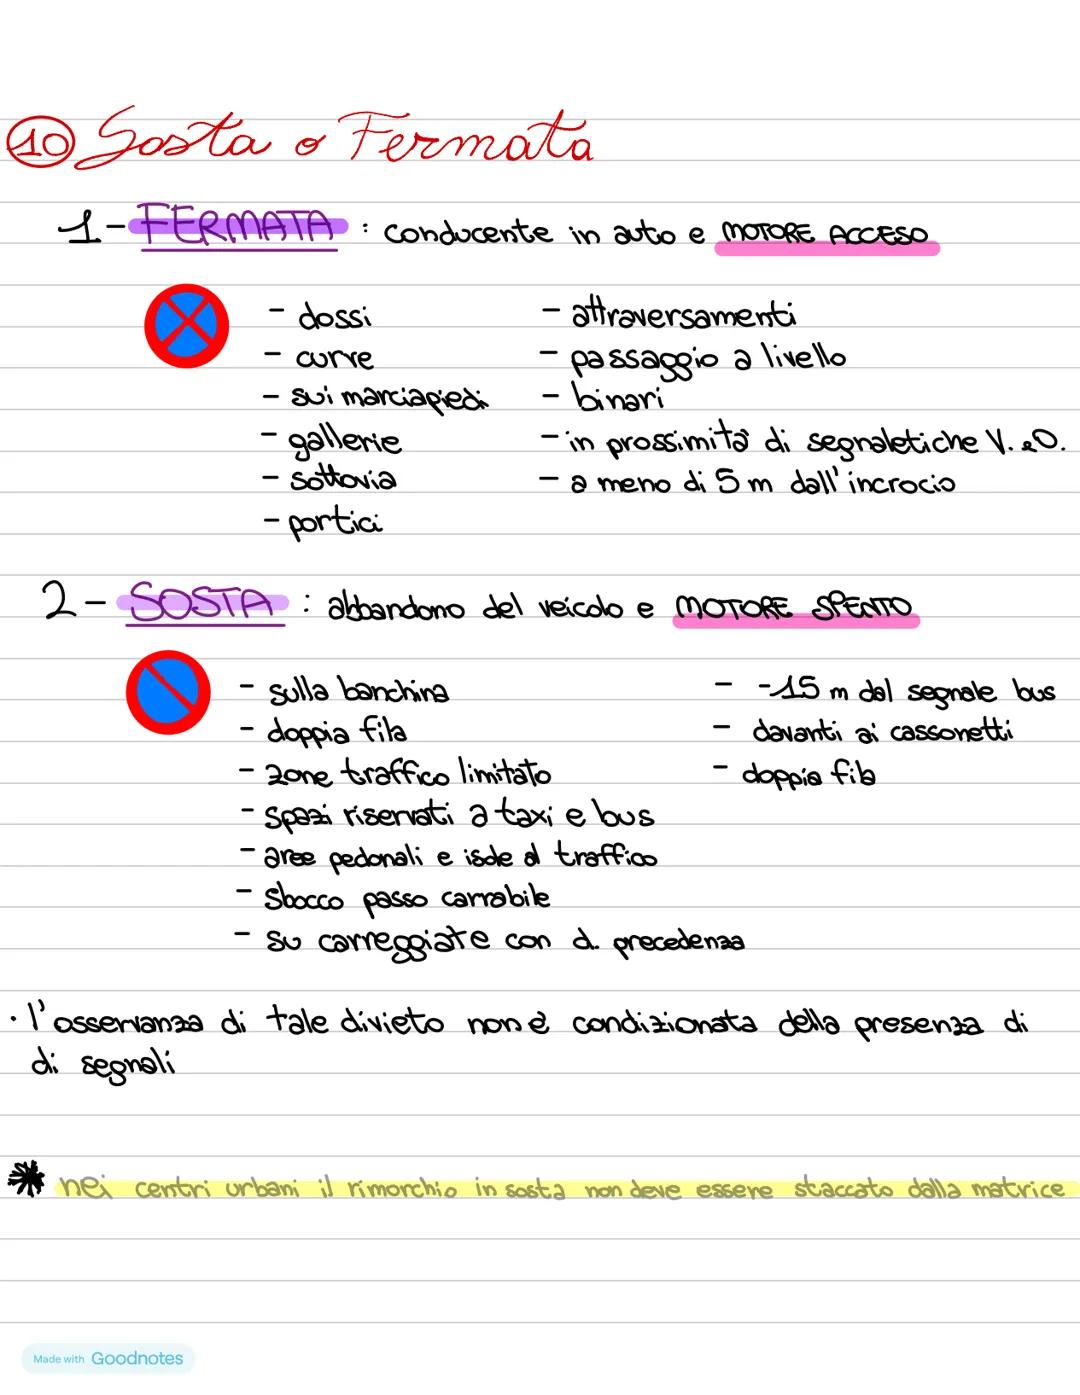 10 Sosta o Fermata
1- FERMATA : conducente in auto e MOTORE ACCESO
- dossi
- curve
- sui marciapiedi
- gallerie
- sottovia
- portici
- attraversamenti
- passaggio a livello
- binari
- in prossimità di segnaletiche V. e O.
- a meno di 5 m dall'incrocio
2- SOSTA : abbandono del veicolo e MOTORE SPENTO
- sulla banchina
- doppia fila
- zone traffico limitato
- spazi riservati a taxi e bus
- aree pedonali e isde al traffico
- Sbocco passo carrabile
- su carreggiate con d. precedenza
- -15 m dal segnale bus
- davanti ai cassonetti
- doppia fila
· l'osservanza di tale divieto non è condizionata della presenza di
di segnali
* nei centri urbani il rimorchio in sosta non deve essere staccato dalla matrice
Made with Goodnotes